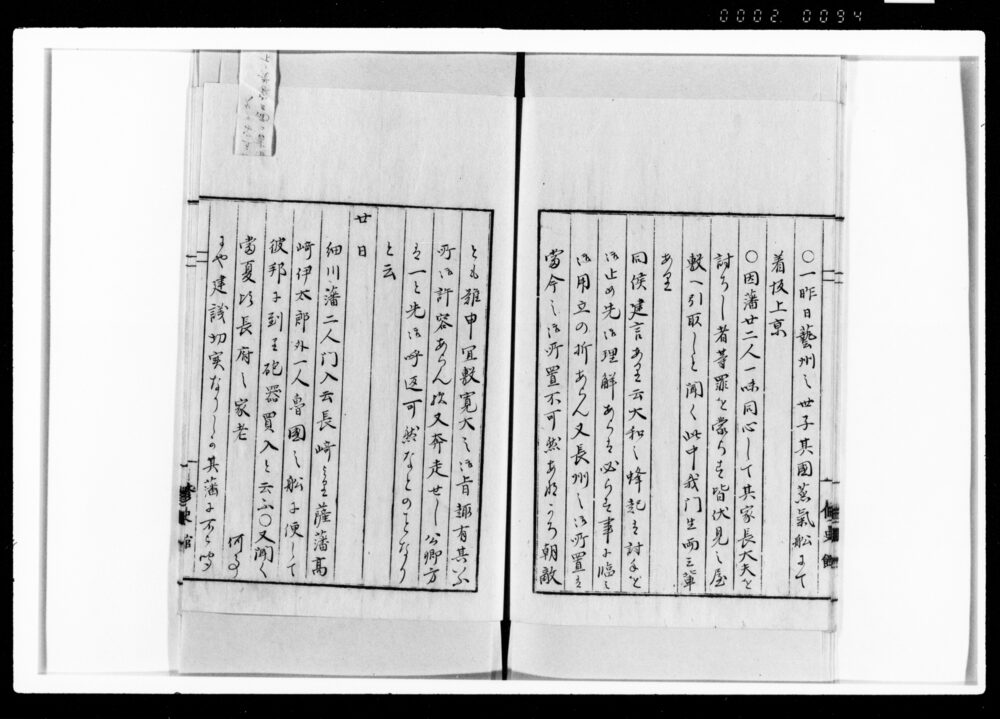 0002 0094
〇一昨日藝州之世子其國蒸氣船にて
着坂上京
〇因藩廿二人一味同心して其家長大夫を
討ちし者等罪を蒙らす皆伏見之屋
敷へ引取しと聞く此中我門生両三輩
あり
同侯建言あり云大和之蜂起は討手を
御止め先御理解あらは必らす事に臨み
御用立の折あらん又長州之御所置は
當今之御所置不可然あぬかる朝敵
とも雖申宜敷寛大之御旨趣有其上
所御許容あらん歟又奔走せし公卿方
を一と先御呼返可然なとのことなり
と云
廿日
細川藩二人门入云長崎より薩藩高
崎伊太郎外一人魯國之船に便して
彼邦に到り砲器買入と云ふ〇又聞く
當夏以長府之家老
にや建議切実なりしか其藩に不